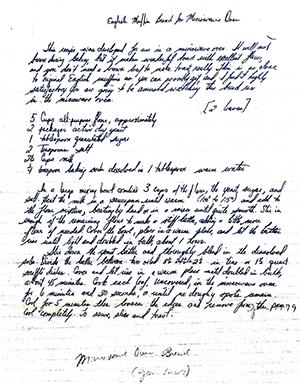 English Muffin Bread for Microwave Oven
This recipe was developed for use in a microwave oven. It will not
brown during baking, but it makes wonderful toast with excellent flavor,
and you don't need a brown
to equal English muffins as you can possibly get, and I find it highly
satisfactory for are going to be amazed watching the bread rise
in the microwave oven.
[2 loaves]
5 Cups all-purpose flour, approximately
2 packages active dry yeast
1 tablespoon granulated sugar
2 teaspoons salt
2½ Cups milk
¼ teaspoon baking soda dissolved in 1 tablespoon warm water
In a large mixing bowl combine 3 cups of the flour, the yeast, sugar, and
salt. Heat the milk in a saucepan until warm and add to
the flour mixture, beating by hand or in a mixer until quite smooth. Stir in
enough of the remaining flour to make a stiff batter, adding a little more
flour if needed. Cover the bowl, place in a warm place, and let the batter
rise until light and doubled in bulk, about 1 hour.
Stir down the yeast batter, and thoroughly blend in the dissolved
soda. Divide the batter between two
soufflé dishes. Cover and let rise in a warm place until doubled in bulk,
about 45 minutes. Cook each loaf, uncovered, in the microwave oven
for 6 minutes and 30 seconds, or until no doughy spots remain.
Cool for 5 minutes, then loosen the edges and remove from the pan
Cool completely. To serve, slice and toast.
Microwave Oven Bread